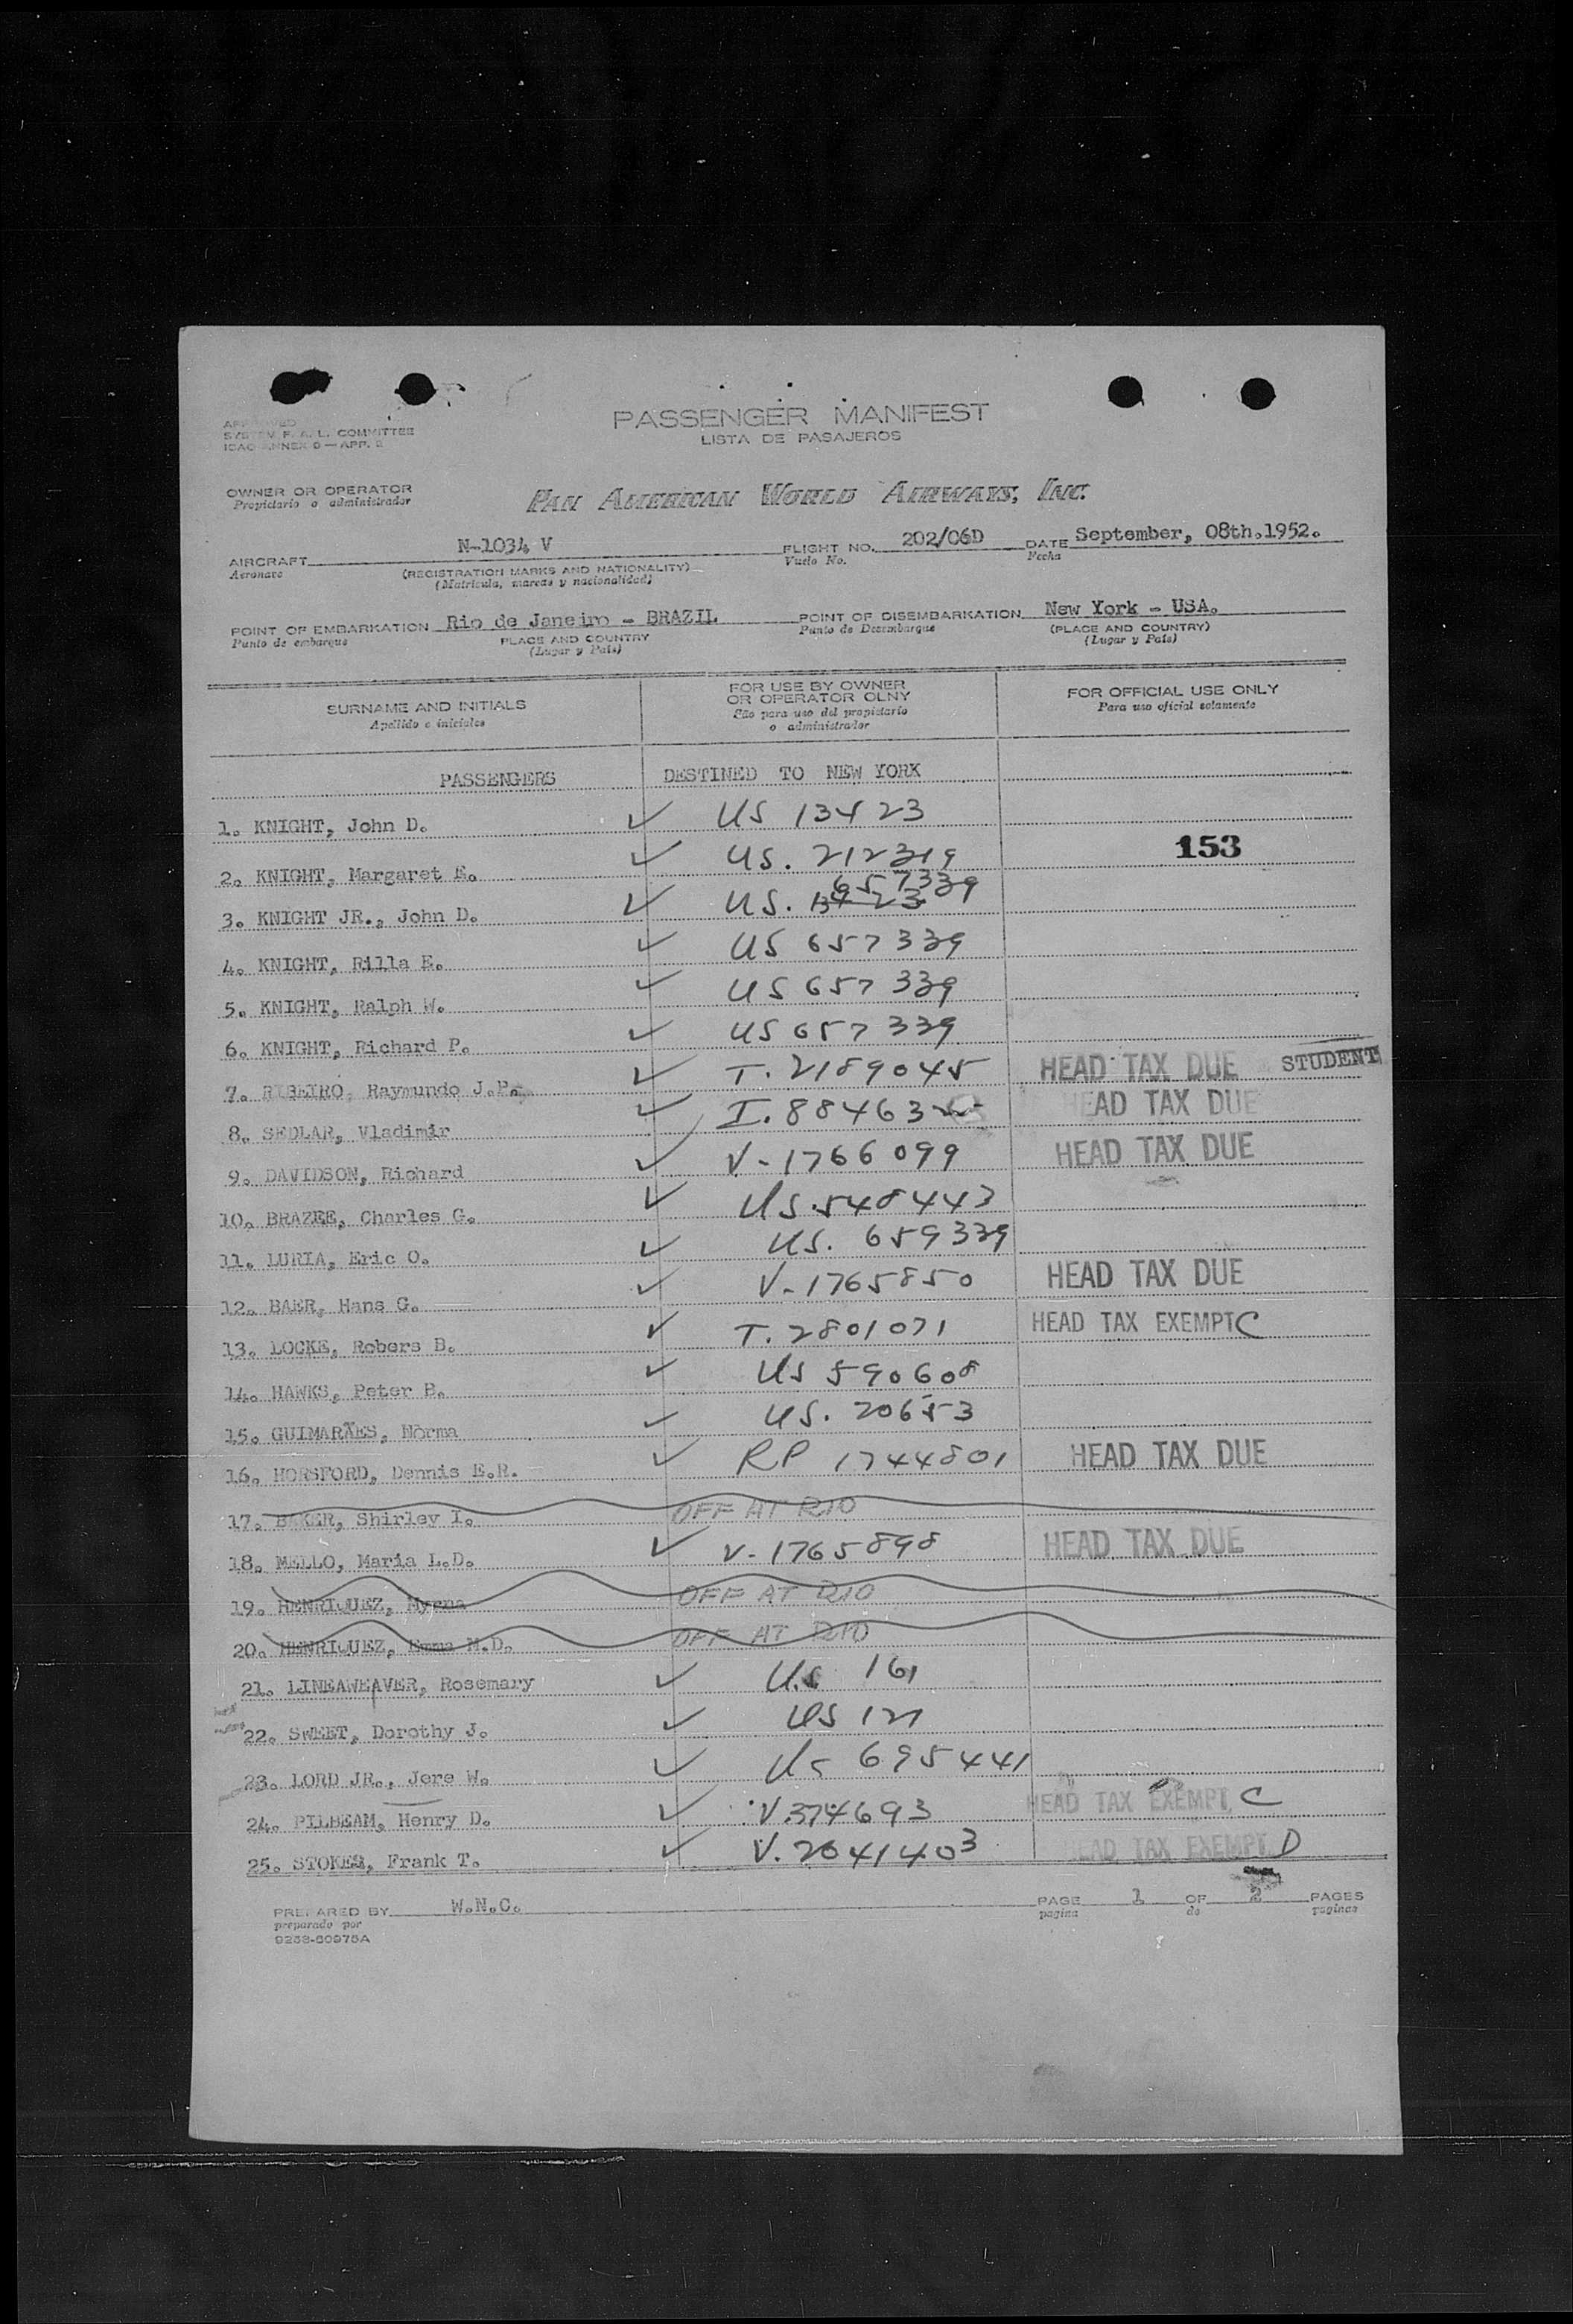 PASSENGER MANIFEST
LISTA DE PASAJEROS
APPROVED
SYSTEM F. A. L. COMMITTEE
ICAO ANNEX 9 — APP. 2
OWNER OR OPERATOR PAN AMERICAN WORLD AIRWAYS, INC.
Propietario o administrador
AIRCRAFT N-1034 V FLIGHT NO. 202/06D DATE September, 08th.1952.
Aeronave (REGISTRATION MARKS AND NATIONALITY) Vuelo No. Fecha
(Matricula, marcas y nacionalidad)
POINT OF EMBARKATION Rio de Janeiro - BRAZIL POINT OF DISEMBARKATION New York - USA.
Punto de embarque PLACE AND COUNTRY Punto de Desembarque (PLACE AND COUNTRY)
(Lugar y País) (Lugar y País)
SURNAME AND INITIALS FOR USE BY OWNER OR OPERATOR OLNY FOR OFFICIAL USE ONLY
Apellido e iniciales para uso del propietario o administrador Para uso oficial solamente
PASSENGERS DESTINED TO NEW YORK
1. KNIGHT, John D. ✓ US 13423
153
2. KNIGHT, Margaret E. ✓ US. 212319
3. KNIGHT JR., John D. ✓ US. 13423 657339
4. KNIGHT, Rilla E. ✓ US 657339
5. KNIGHT, Ralph W. ✓ US 657339
6. KNIGHT, Richard P. ✓ US 657339
7. RIBEIRO, Raymundo J.P. ✓ T. 2189045 HEAD TAX DUE STUDENT
8. SEDLAR, Vladimir ✓ I. 88463 HEAD TAX DUE
9. DAVIDSON, Richard ✓ V-1766099 HEAD TAX DUE
10. BRAZEE, Charles G. ✓ US.548443
11. LURIA, Eric O. ✓ US. 659339
12. BAER, Hans G. ✓ V-1765850 HEAD TAX DUE
13. LOCKE, Robers B. ✓ T. 2801071 HEAD TAX EXEMPT C
14. HAWKS, Peter B. ✓ US 590608
15. GUIMARÃES, Norma ✓ US. 20653
16. HORSFORD, Dennis E.R. ✓ RP 1744801 HEAD TAX DUE
17. BAKER, Shirley I. OFF AT RIO
18. MELLO, Maria L.D. ✓ V-1765898 HEAD TAX DUE
19. HENRIQUEZ, Myrna OFF AT RIO
20. HENRIQUEZ, Emma M.D. OFF AT RIO
21. LINEAWEAVER, Rosemary ✓ US 161
22. SWEET, Dorothy J. ✓ US 121
23. LORD JR., Jere W. ✓ US 695441
24. PILBEAM, Henry D. ✓ V.374693 HEAD TAX EXEMPT C
25. STOKES, Frank T. ✓ V.2041403 HEAD TAX EXEMPT D
PREPARED BY W.N.C. PAGE 1 OF 2 PAGES
preparado por pagina de paginas
9238-60975A